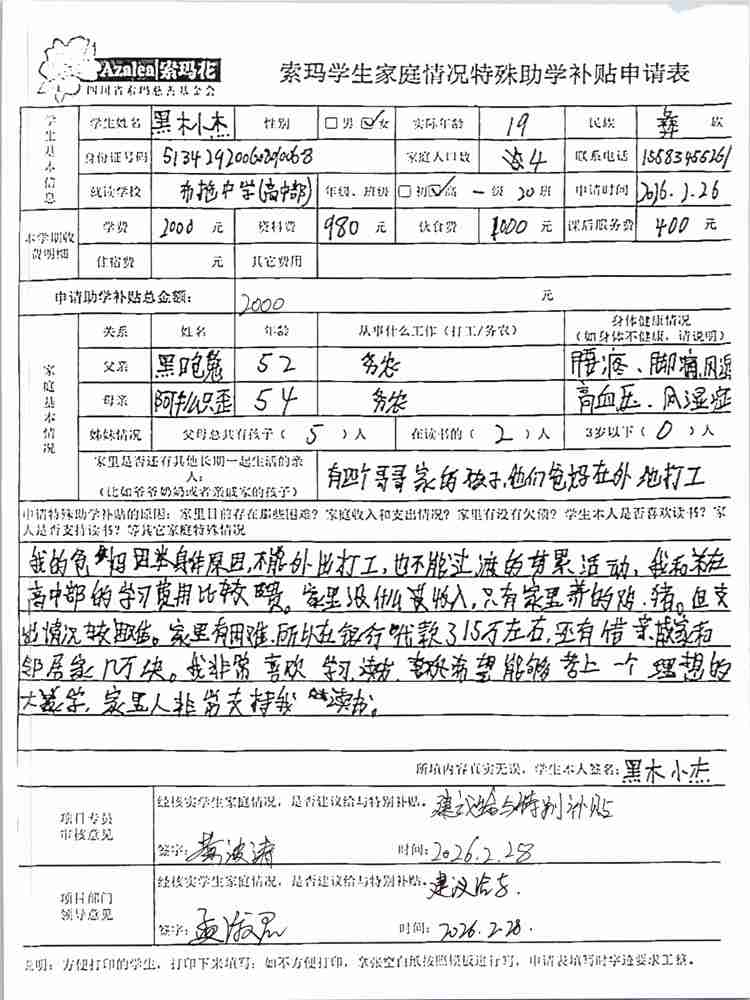 Azalea 索玛花
四川省索玛慈善基金会
索玛学生家庭情况特殊助学补贴申请表
学生基本信息
学生姓名 黑木小杰 性别 □男 ☑女 实际年龄 19 民族 彝 族
身份证号码 家庭人口数 4 联系电话 15583455261
就读学校 布拖中学(高中部) 年级、班级 □初☑高 一 级 20 班 申请时间 2026.2.26
本学期收费明细
学费 2000 元 资料费 980 元 伙食费 1000 元 课后服务费 400 元
住宿费 元 其它费用
申请助学补贴总金额: 2000 元
家庭基本情况
关系 姓名 年龄 从事什么工作(打工/务农) 身体健康情况(如身体不健康,请说明)
父亲 黑日鬼 52 务农 腰疼、脚痛,风湿
母亲 54 务农 高血压、风湿症
姊妹情况 父母总共有孩子( 5 )人 在读书的( 2 )人 3岁以下( 0 )人
家里是否还有其他长期一起生活的亲人:(比如爷爷奶奶或者亲戚家的孩子) 有四个哥哥家的孩子,他们爸妈在外地打工
申请特殊助学补贴的原因:家里目前存在那些困难?家庭收入和支出情况?家里有没有欠债?学生本人是否喜欢读书?家
人是否支持读书?等其它家庭特殊情况
我的爸妈因为身体原因,不能外出打工,也不能过渡的劳累活动,我和弟在
高中部的学习费用比较贵。家里没什么收入,只有家里养的鸡、猪。但支
出情况较困难。家里有困难,所以在银行贷款了15万左右,还有借亲戚家和
邻居家几万块。我非常喜欢学习、读书,希望能够考上一个理想的
大学,家里人非常支持我读书。
所填内容真实无误,学生本人签名: 黑木小杰
项目专员审核意见
经核实学生家庭情况,是否建议给与特别补贴。 建议给与特别补贴
签字: 黄波涛 时间: 2026.2.28
项目部门领导意见
经核实学生家庭情况,是否建议给与特别补贴。 建议给与.
签字: 时间: 2026.2.28.
说明:方便打印的学生,打印下来填写;如不方便打印,拿张空白纸按照模板进行写,申请表填写时字迹要求工整。